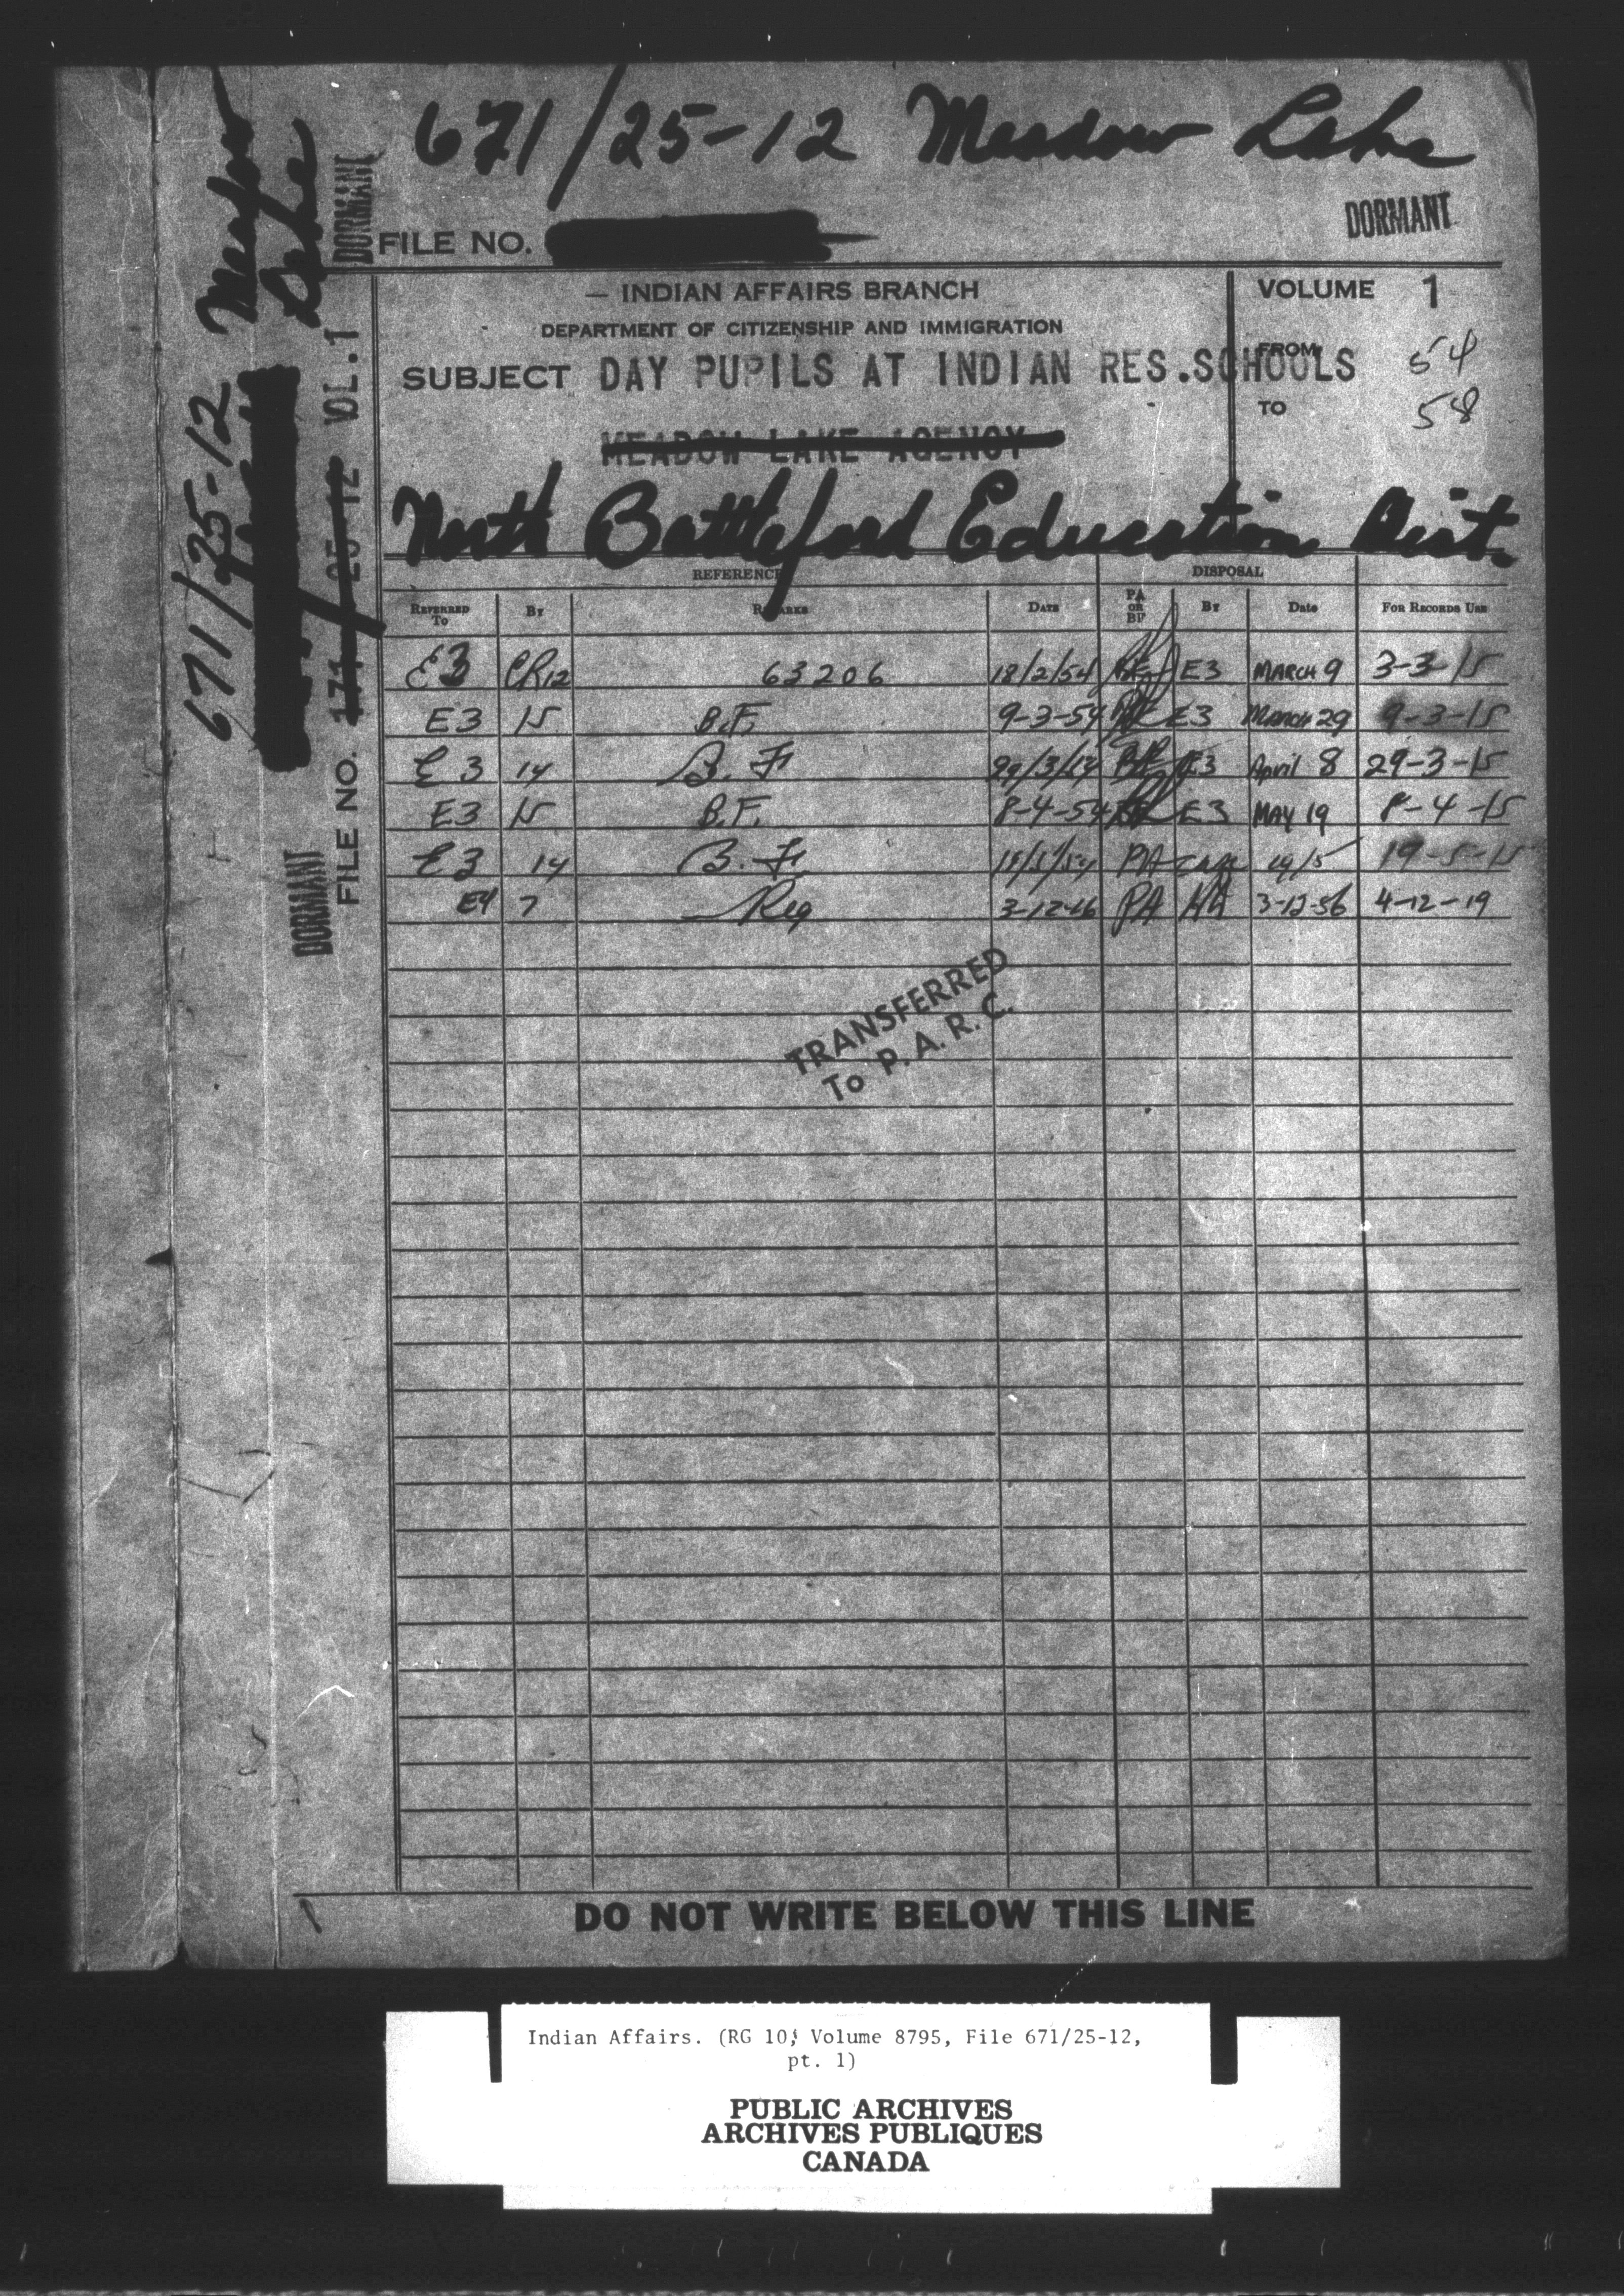 671/25-12 Meadow Lake
DORMANT
FILE NO.
— INDIAN AFFAIRS BRANCH
DEPARTMENT OF CITIZENSHIP AND IMMIGRATION
SUBJECT DAY PUPILS AT INDIAN RES.SCHOOLS
MEADOW LAKE AGENCY
North Battleford Education Dist.
VOLUME 1
FROM 54
TO 58
REFERENCE DISPOSAL
REFERRED TO BY REMARKS DATE PA OR BF BY Date FOR RECORDS USE
E3 CR12 63206 18/2/54 E3 MARCH 9 3-3-15
E3 15 B.F. 9-3-54 E3 March 29 9-3-15
E3 14 B.F. 29/3/54 BF E3 April 8 29-3-15
E3 15 B.F. 8-4-54 E3 MAY 19 8-4-15
E3 14 B.F. PA 19/5 19-5-15
E4 7 Reg 3-12-56 PA 3-12-56 4-12-19
TRANSFERRED
To P.A.R.C.
DO NOT WRITE BELOW THIS LINE
671/25-12 Meadow Lake
DORMANT FILE NO. 171 25-12 VOL.1 DORMANT
Indian Affairs. (RG 10, Volume 8795, File 671/25-12,
pt. 1)
PUBLIC ARCHIVES
ARCHIVES PUBLIQUES
CANADA